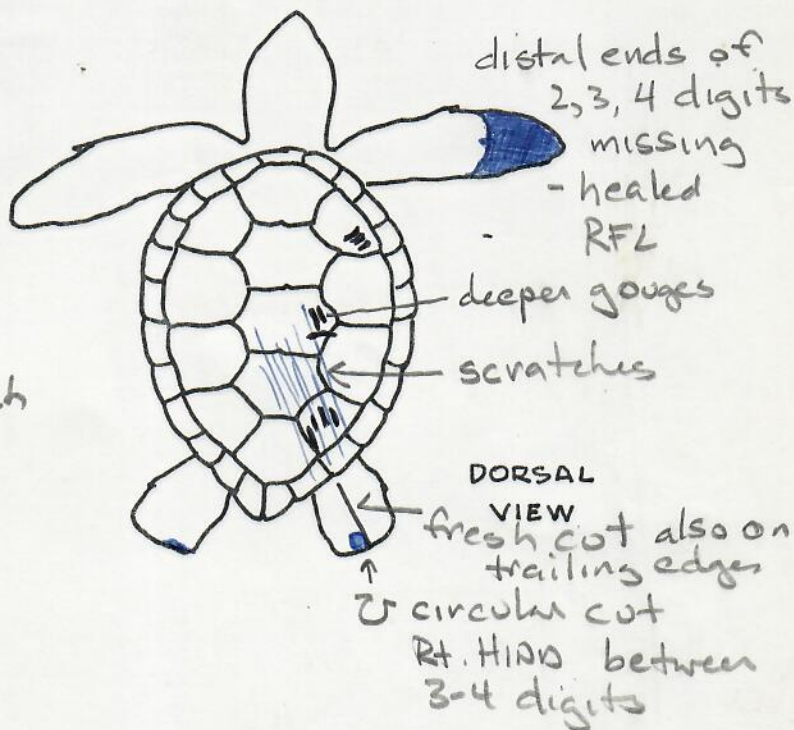 distal ends of
2, 3, 4 digits
missing
- healed
RFL
deeper gouges
scratches
DORSAL
VIEW
fresh cut also on
trailing edges
circular cut
Rt. HIND between
3-4 digits